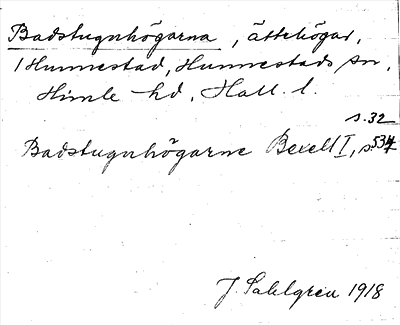 Badstugnhögarna, ättehögar,
i Hunnestad, Hunnestads sn,
Himle hd, Hall. l.
s. 32
Badstugnhögarne Bexell I, s. 534
J. Sahlgren 1918